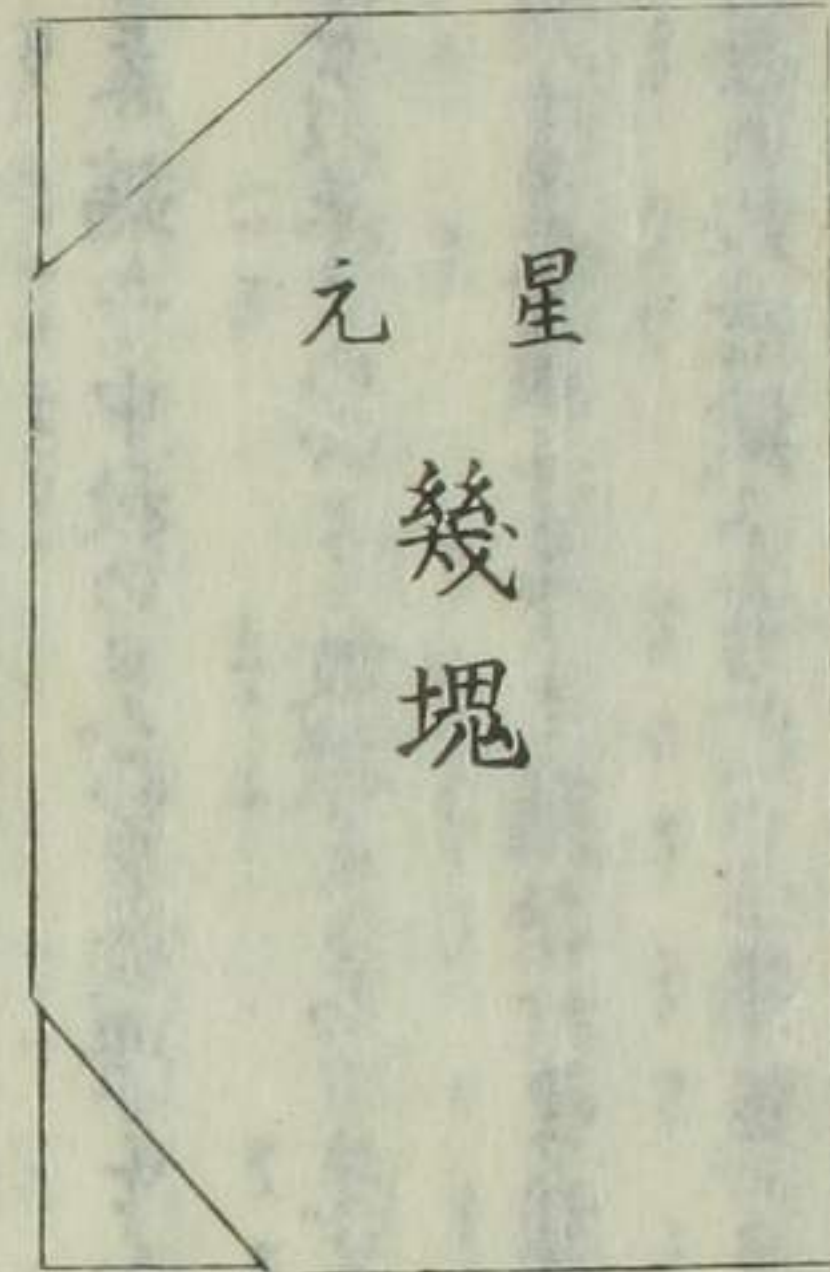 星元
幾塊